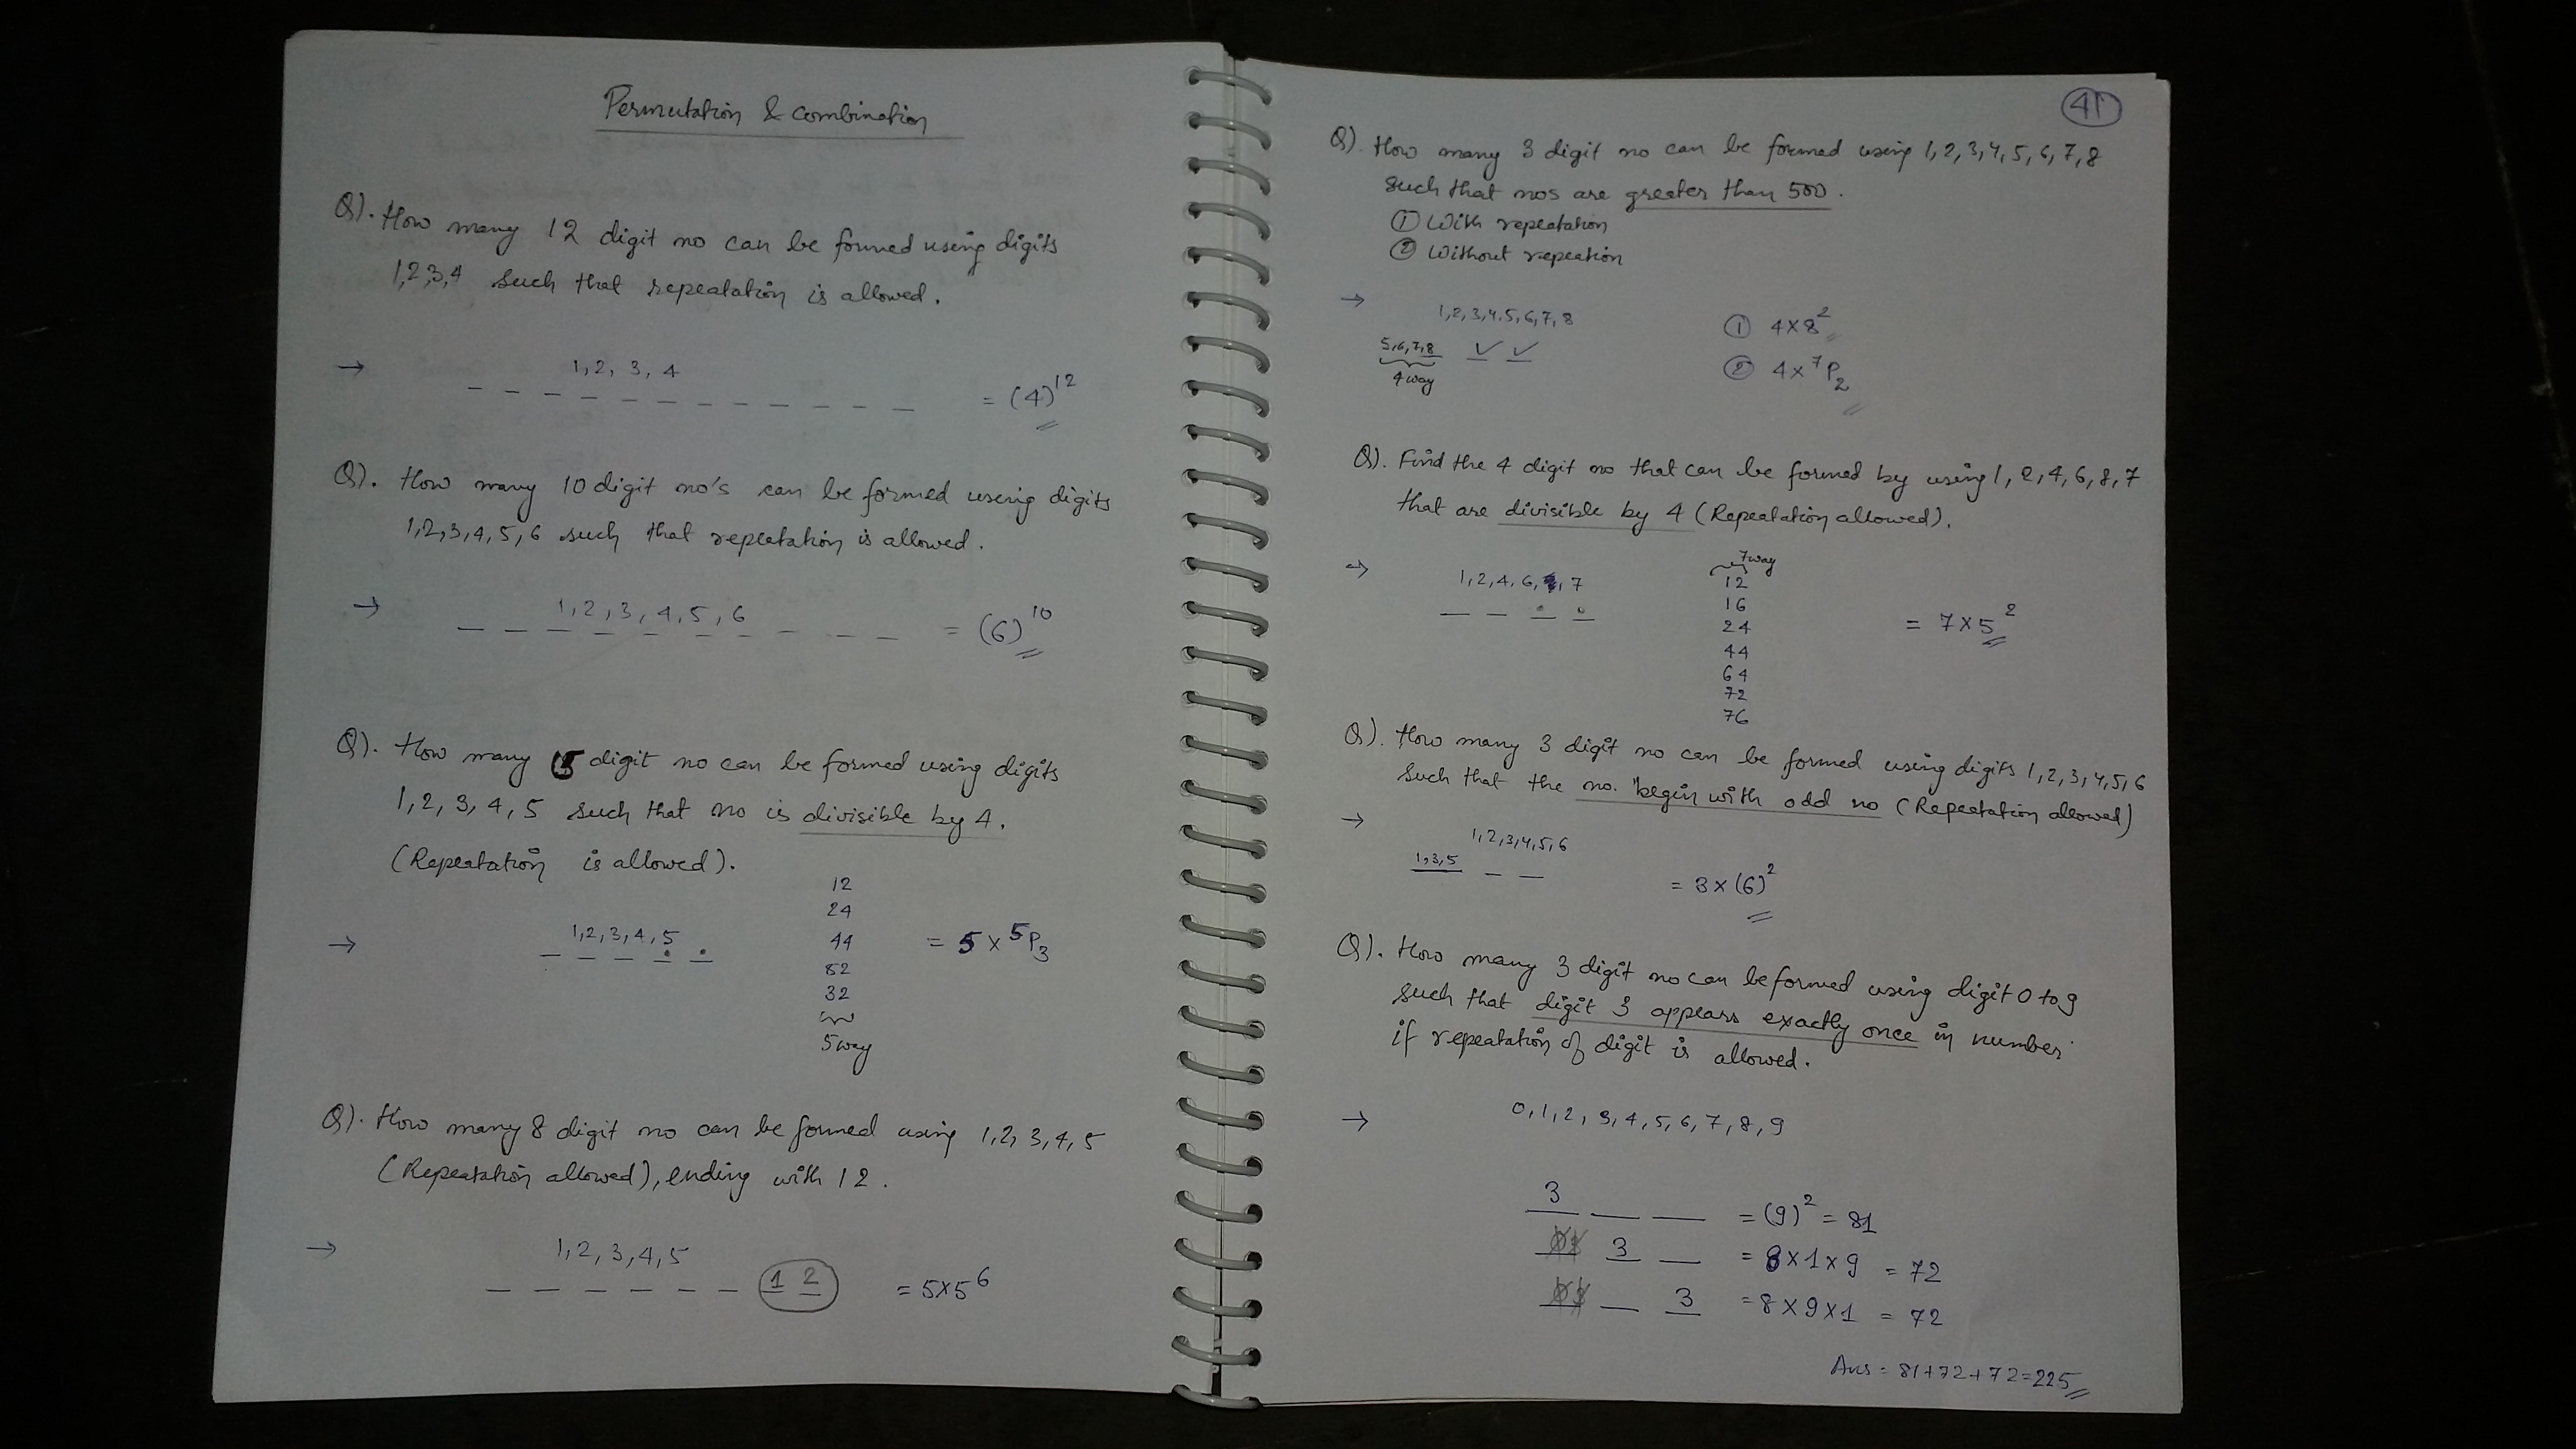 Permutation & combination
Q). How many 12 digit no can be formed using digits
1,2,3,4 such that repeatation is allowed.
→ 1, 2, 3, 4
_ _ _ _ _ _ _ _ _ _ _ _ = (4)^12
Q). How many 10 digit no's can be formed using digits
1,2,3,4,5,6 such that repeatation is allowed.
→ 1,2,3,4,5,6
_ _ _ _ _ _ _ _ _ _ = (6)^10
Q). How many 5 digit no can be formed using digits
1, 2, 3, 4, 5 such that no is divisible by 4.
(Repeatation is allowed).
12
24
→ 1,2,3,4,5 44 = 5 x 5P3
52
32
5way
Q). How many 8 digit no can be formed using 1,2,3,4,5
(Repeatation allowed), ending with 12.
→ 1,2,3,4,5
_ _ _ _ _ _ 1 2 = 5x5^6
41
Q). How many 3 digit no can be formed using 1,2,3,4,5,6,7,8
such that nos are greater than 500.
① With repeatation
② Without repeation
→ 1,2,3,4,5,6,7,8 ① 4x8^2
5,6,7,8 ✓ ✓
4way ② 4x 7P2
Q). Find the 4 digit no that can be formed by using 1, 2, 4, 6, 8, 7
that are divisible by 4 (Repeatation allowed).
7way
→ 1,2,4,6, , 7 12
16
24 = 7x5^2
44
64
72
76
Q). How many 3 digit no can be formed using digits 1,2,3,4,5,6
such that the no. begin with odd no (Repeatation allowed)
→ 1,2,3,4,5,6
1,3,5 _ _ = 3x(6)^2
Q). How many 3 digit no can be formed using digit 0 to 9
such that digit 3 appears exactly once in number
if repeatation of digit is allowed.
→ 0,1,2, 3,4,5,6,7,8,9
3 _ _ = (9)^2 = 81
_ 3 _ = 8x1x9 = 72
_ _ 3 = 8x9x1 = 72
Ans = 81+72+72=225